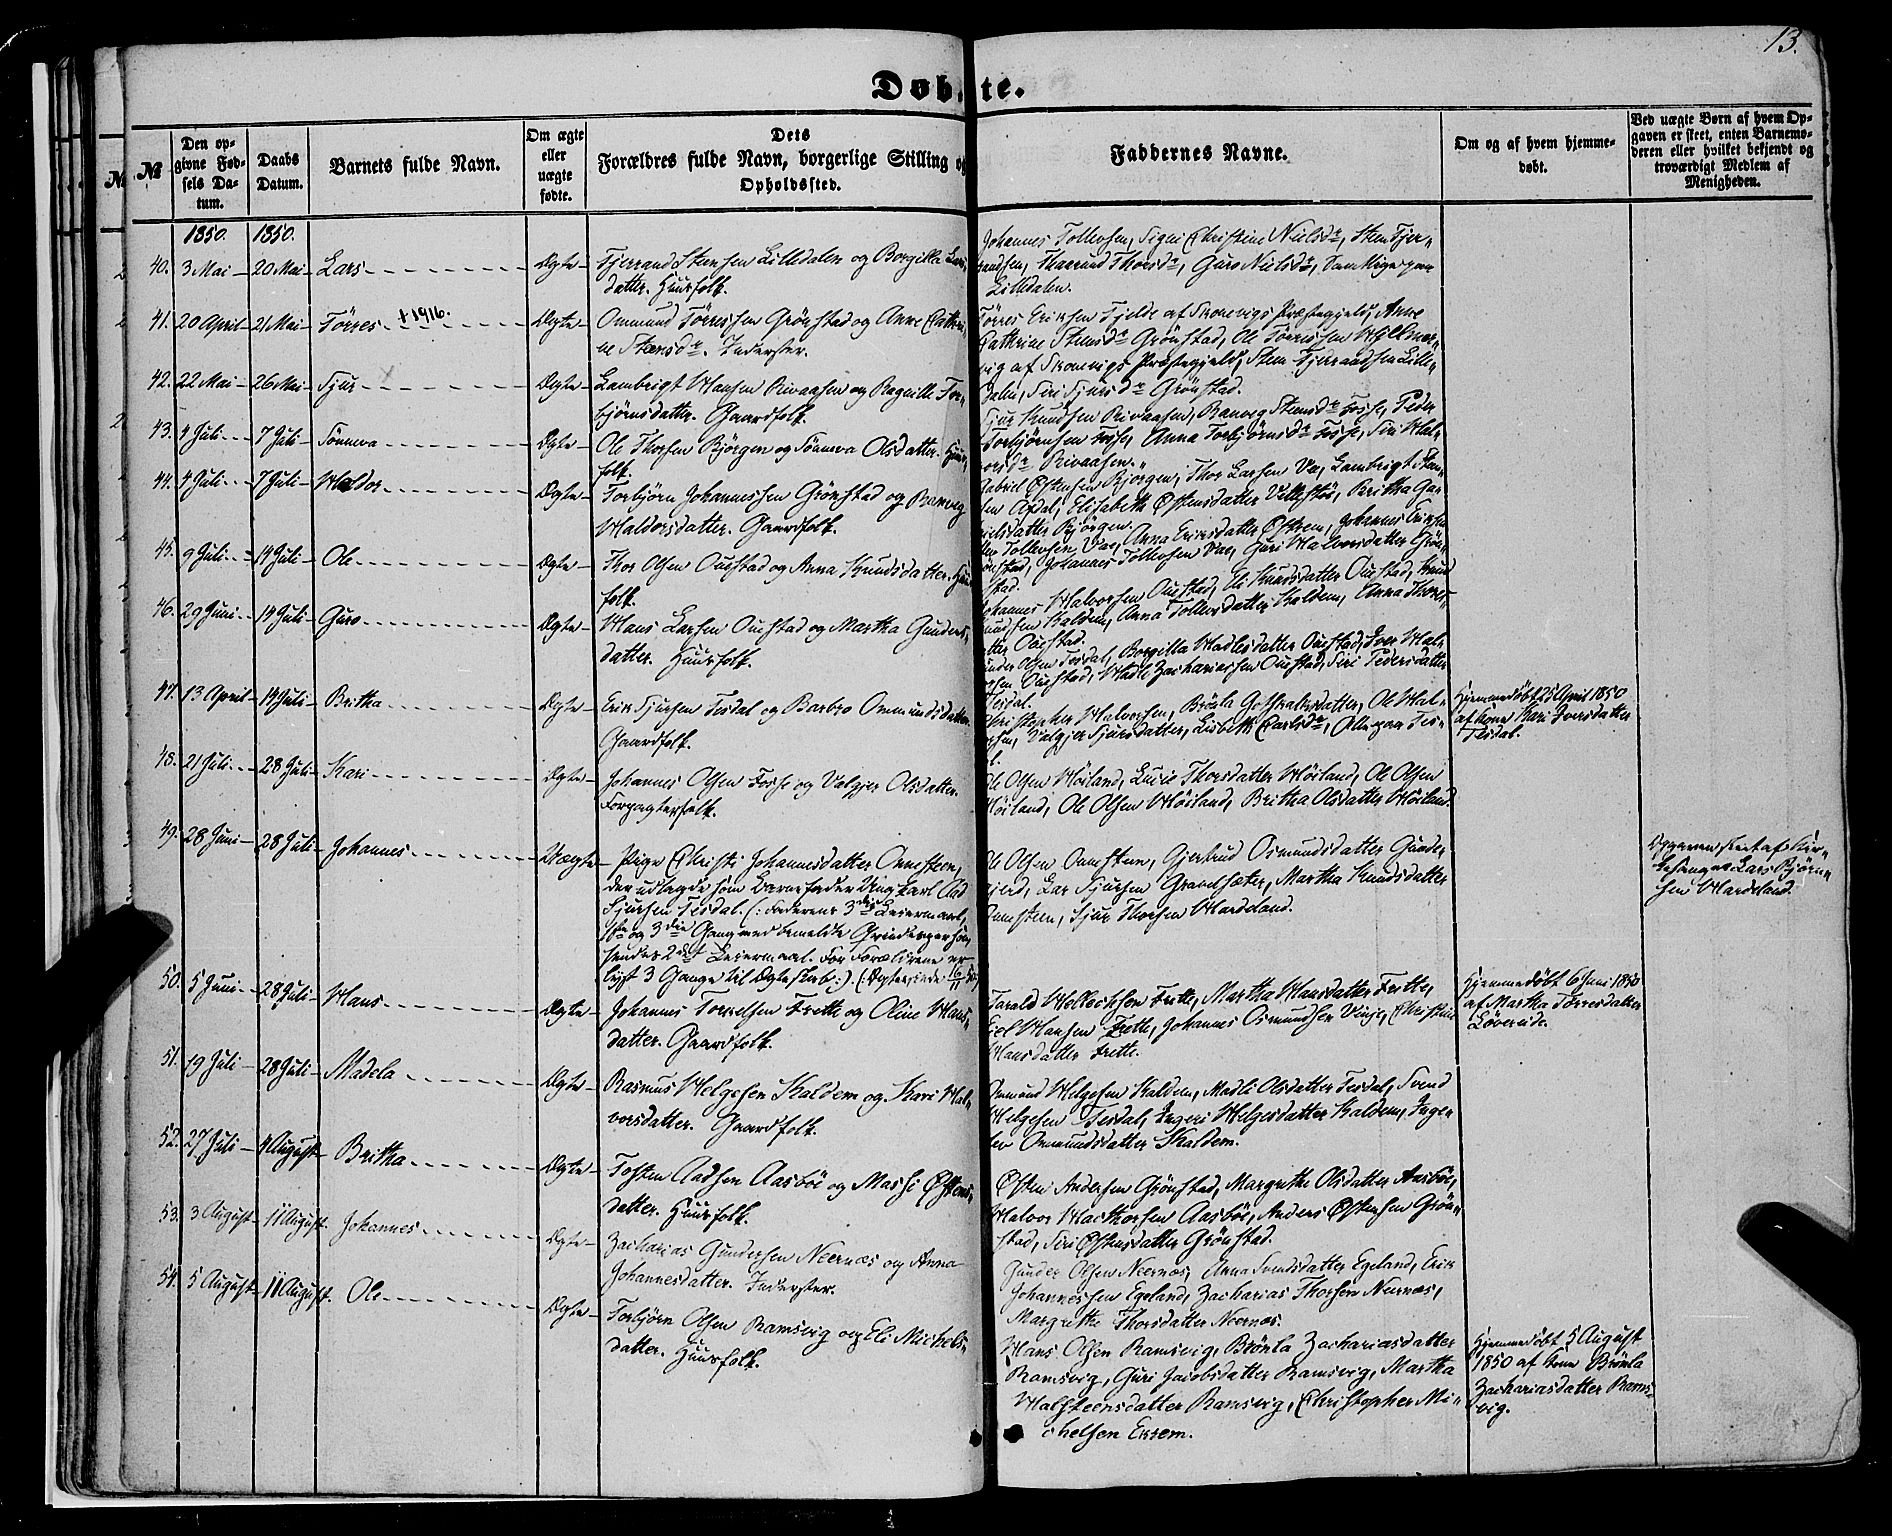 13.
Døbte.
№
Den opgivne Fødsels Datum.
Daabs Datum.
Barnets fulde Navn.
Om ægte eller uægte fødte.
Dets Forældres fulde Navn, borgerlige Stilling og Opholdssted.
Faddernes Navne.
Om og af hvem hjemmedøbt.
Ved uægte Børn af hvem Opgaven er skeet, enten Barnemoderen eller hvilket bekjendt og troværdigt Medlem af Menigheden.
1850. 1850.
40. 3 Mai 20 Mai Lars Ægte Tjerrand Steensen Lilledalen og Borgilla Lars-
datter. Huusfolk.
Johannes Tollevsen, Signi Christine Nielsdr, Sten Tjer-
randsen, Thorsdr, Guro Nielsdr, Samtlige paa
Lilledalen.
41. 20 April 21 Mai Törres † 1916. Ægte Ommund Törressen Grönstad og Anne Cathri-
ne Steensdr. Inderster.
Törres Eriksen Fjelde af Skonevigs Præstegjeld, Anne
Cathrine Steensdr Grönstad, Ole Torrissen
vig af Skonevigs Præstegjeld, Steen Tjerrandsen Lille-
dalen, Siri Sjursdr Grönstad.
42. 22 Mai 26 Mai Sjur Ægte Lambrigt Hansen Rivaasen og Ragnille Tor-
björnsdatter. Gaardfolk.
Sjur Knudsen Rivaasen, Ranveg Steensdr Fosse, Peder
Torbjörnsen Fosse, Anna Torbjörnsdr Fosse, Siri Hal-
vorsdr Rivaasen.
43. 4 Juli 7 Juli Sönneva Ægte Ole Thorsen Björgen og Sönneva Olsdatter. Huus-
folk.
Gabriel Östensen Bjorgen, Thor Larsen Va, Lambrigt
sen Afdal, Elisabeth Östensdatter, Britha Ga-
brielsdatter Björgen.
44. 4 Juli 7 Juli Haldor Ægte Torbjörn Johannessen Grönstad og Ranveig
Haldorsdatter. Gaardfolk.
Tollevsen Vae, Anna Eriksdatter Östrem, Johannes Eriksen
Grönstad, Johannes Tollevsen Vae, Guri Halvorsdatter Grön-
stad.
45. 9 Juli 14 Juli Ole Ægte Thor Olsen Ouestad og Anna Knudsdatter. Huus-
folk.
Johannes Halvorsen Ouestad, Eli Knudsdatter Ouestad, Knud
Knudsen Kaldem, Anna Tollevsdatter Kaldem, Anna Thores-
datter Ouestad.
46. 29 Juni 14 Juli Guro Ægte Hans Larsen Ouestad og Martha Gunders-
datter. Huusfolk.
Gunder Olsen Tesdal, Borgilla Hadlesdatter Ouestad, Iver Hal-
vorsen Ouestad, Hadle Zachariassen Ouestad, Siri Pedersdatter
Tesdal.
47. 13 April 14 Juli Britha Ægte Erik Sjursen Tesdal og Barbro Ommundsdatter.
Gaardfolk.
Christopher Halvorsen, Brönla Gothalksdatter, Ole Hal-
vorsen, Valgjer Sjursdatter, Lisbeth Carlsdr, Alle paa Tes-
dal.
Hjemmedöbt 25 April 1850
af Kone Kari Iversdatter
Tesdal.
48. 21 Juli 28 Juli Kari Ægte Johannes Olsen Fosse og Valgjer Olsdatter.
Forpagterfolk.
Ole Olsen Höiland, Lucie Thorsdatter Höiland, Ole Olsen
Höiland, Ole Olsen Höiland, Britha Olsdatter Höiland.
49. 28 Juni 28 Juli Johannes Uægte Pige Christi Johannesdatter Onnesteen,
der udlagde som Barnefader Ungkarl Aad
Sjursen Tesdal. (: Faderens 3die Leiermaal,
1te og 3die Gang med bemeldte Qvindesperson,
hendes 2det Leiermaal. For Forældrene er
lyst 3 Gange til Ægteskab:). (: Ægteviede 16/11 50)
Ole Olsen Onnesteen, Gjertrud Osmundsdatter Gunder-
gjerd, Lar Sjursen Grandsæter, Martha Knudsdatter
Onnesteen, Sjur Thorsen Hardeland.
Opgaven skeet af Kir-
kesanger Lars Björn-
sen Hardeland.
50. 5 Juni 28 Juli Hans Ægte Johannes Torrelsen Frette og Oline Hans-
datter. Gaardfolk.
Tarald Frette, Martha Hansdatter Frette,
Hansen Frette, Johannes Osmundsen Vinje, Christine
Hansdatter Frette.
Hjemmedöbt 6 Juni 1850
af Martha Törresdatter
Lövereide.
51. 19 Juli 28 Juli Madela Ægte Rasmus Helgesen Kaldem og Kari Hal-
vorsdatter. Gaardfolk.
Ommund Helgesen Kaldem, Madli Olsdatter Tesdal, Svend
Helgesen Tesdal, Ingeri Helgesdatter Kaldem, Inge-
lev Ommundsdatter Kaldem.
52. 27 Juli 4 August Britha Ægte Tosten Aadsen Aasböe og Massi Östens-
datter. Huusfolk.
Östen Andersen Grönstad, Margrethe Olsdatter Aasböe,
Halvor Aasböe, Anders Östensen Grön-
stad, Siri Östensdatter Grönstad.
53. 3 August 11 August Johannes Ægte Zacharias Gundersen Neernæs og Anna
Johannesdatter. Inderster.
Gunder Olsen Neernæs, Anna Svendsdatter Egeland, Erik
Johannessen Egeland, Zacharias Thorsen Neernæs,
Margrethe Thorsdatter Neernæs.
54. 5 August 11 August Ole Ægte Torbjörn Olsen Ramsvig og Eli Michels-
datter. Huusfolk.
Hans Olsen Ramsvig, Brönla Zachariasdatter
Ramsvig, Guri Jacobsdatter Ramsvig, Martha
Halsteensdatter Ramsvig, Christopher Mi-
chelsen Essem.
Hjemmedöbt 5 August
1850 af Kone Brönla
Zachariasdatter Rams-
vig.